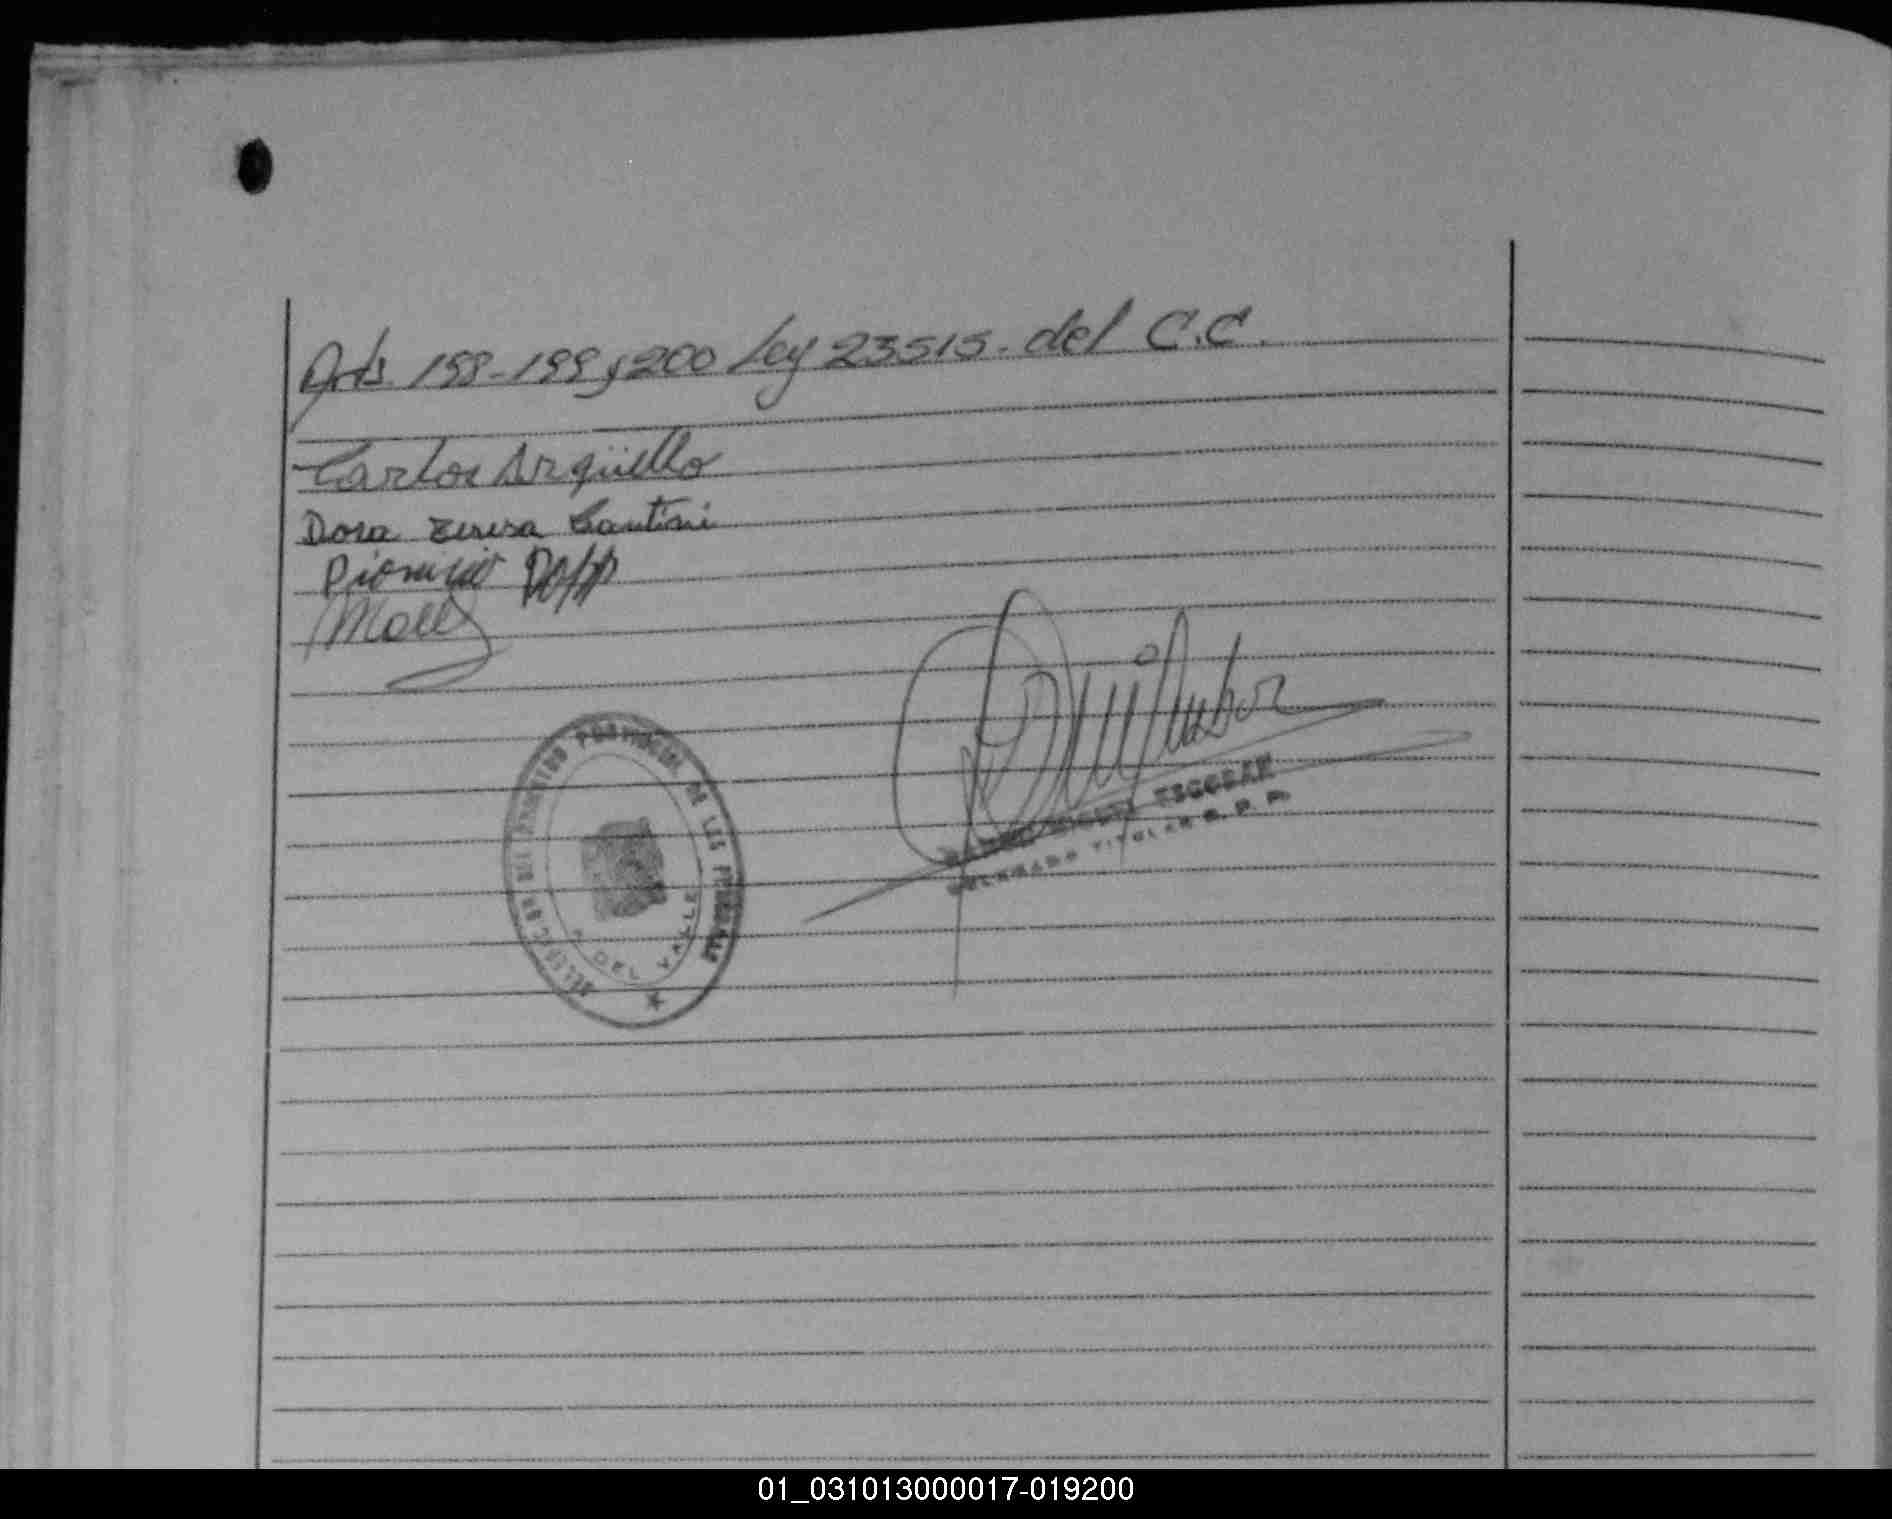 Arts. 198-199 y 200 Ley 23515. del C.C.
Carlos Argüello
Dora Teresa Santini
Dionicio Popp
DEL REGISTRO PROVINCIAL DE LAS PERSONAS
DEL VALLE
ESCOBAR
DELEGADO TITULAR R. P. P.
01_031013000017-019200